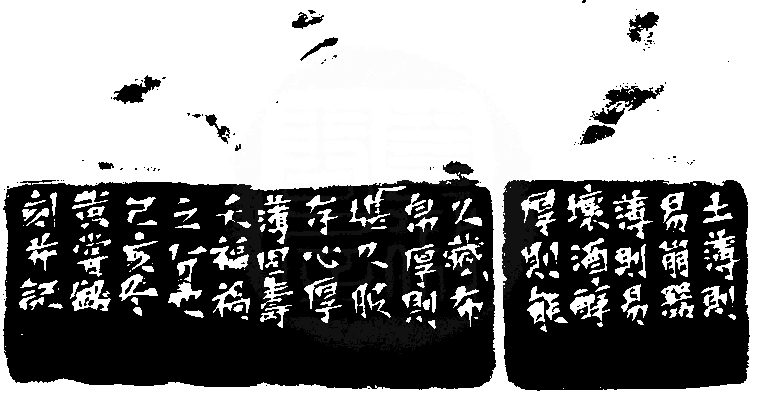 土薄則
易崩器
薄則易
壞酒醇
厚則能
久藏布
帛厚則
堪久服
存心厚
薄固壽
夭福禍
之分也
己亥冬
黃嘗銘
刻并記